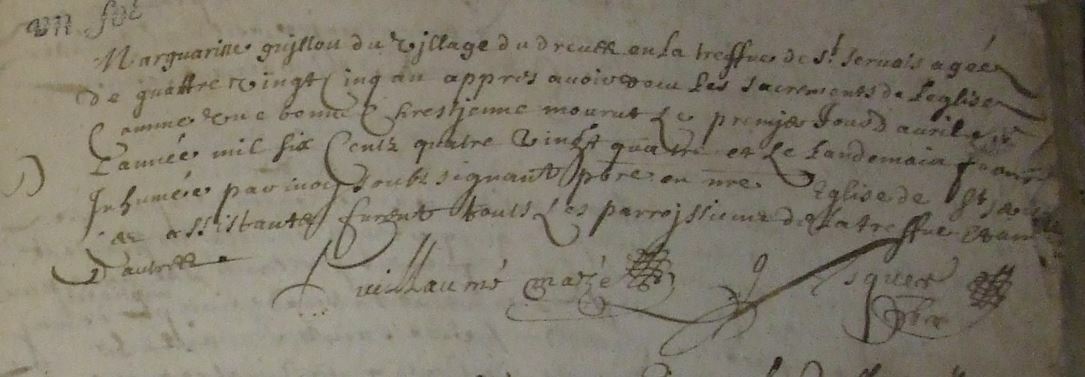 un foi
Marguaritte guillou du village du dreuez en la treffve de St servais agée
de quattre vingt cinq an appres avoir receu les sacrements de leglise
comme une bonne Chrestienne mourut le premjer Jour d'avrile
Lannée mil six Centz quatre vingt quatre et le landemain fut
Inhumée par moy soubz signant pbre en nre Eglise de St
et assistantz furent touts les parroissiens de la treffve et
d'autres
Guillaume mazé Jsquer
pbre